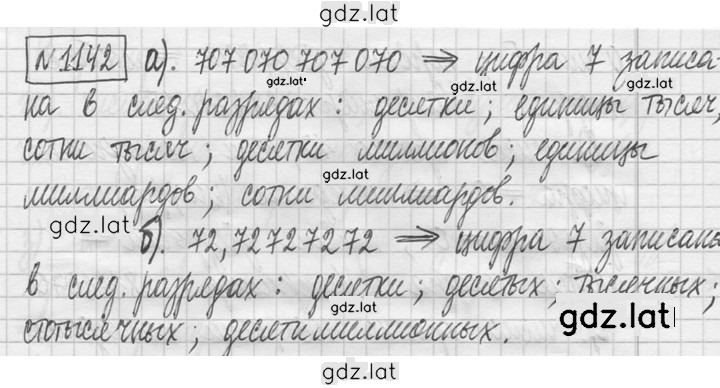 gdz.lat
№1142 а). 707 070 707 070 ⇒ цифра 7 записа-
gdz.lat gdz.lat
на в след. разрядах: десятки; единицы тысяч;
сотни тысяч; десятки миллионов; единицы
gdz.lat
миллиардов; сотни миллиардов.
gdz.lat
б). 72,72727272 ⇒ цифра 7 записана
gdz.lat
в след. разрядах: десятки; десятых; тысячных;
gdz.lat gdz.lat
стотысячных; десятимиллионных.
gdz.lat